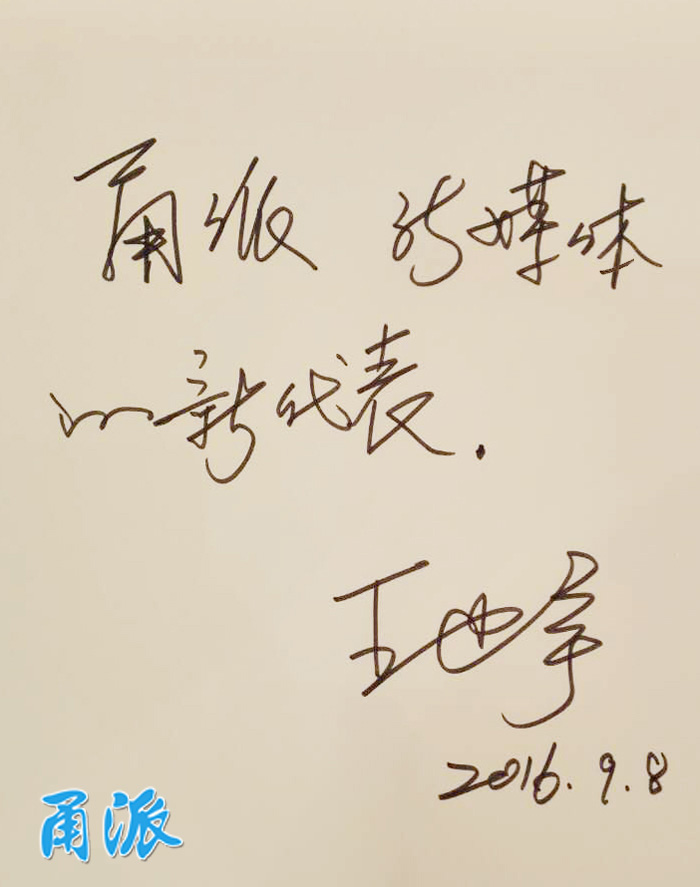 甬派 新媒体
的新代表.
2016.9.8
甬派